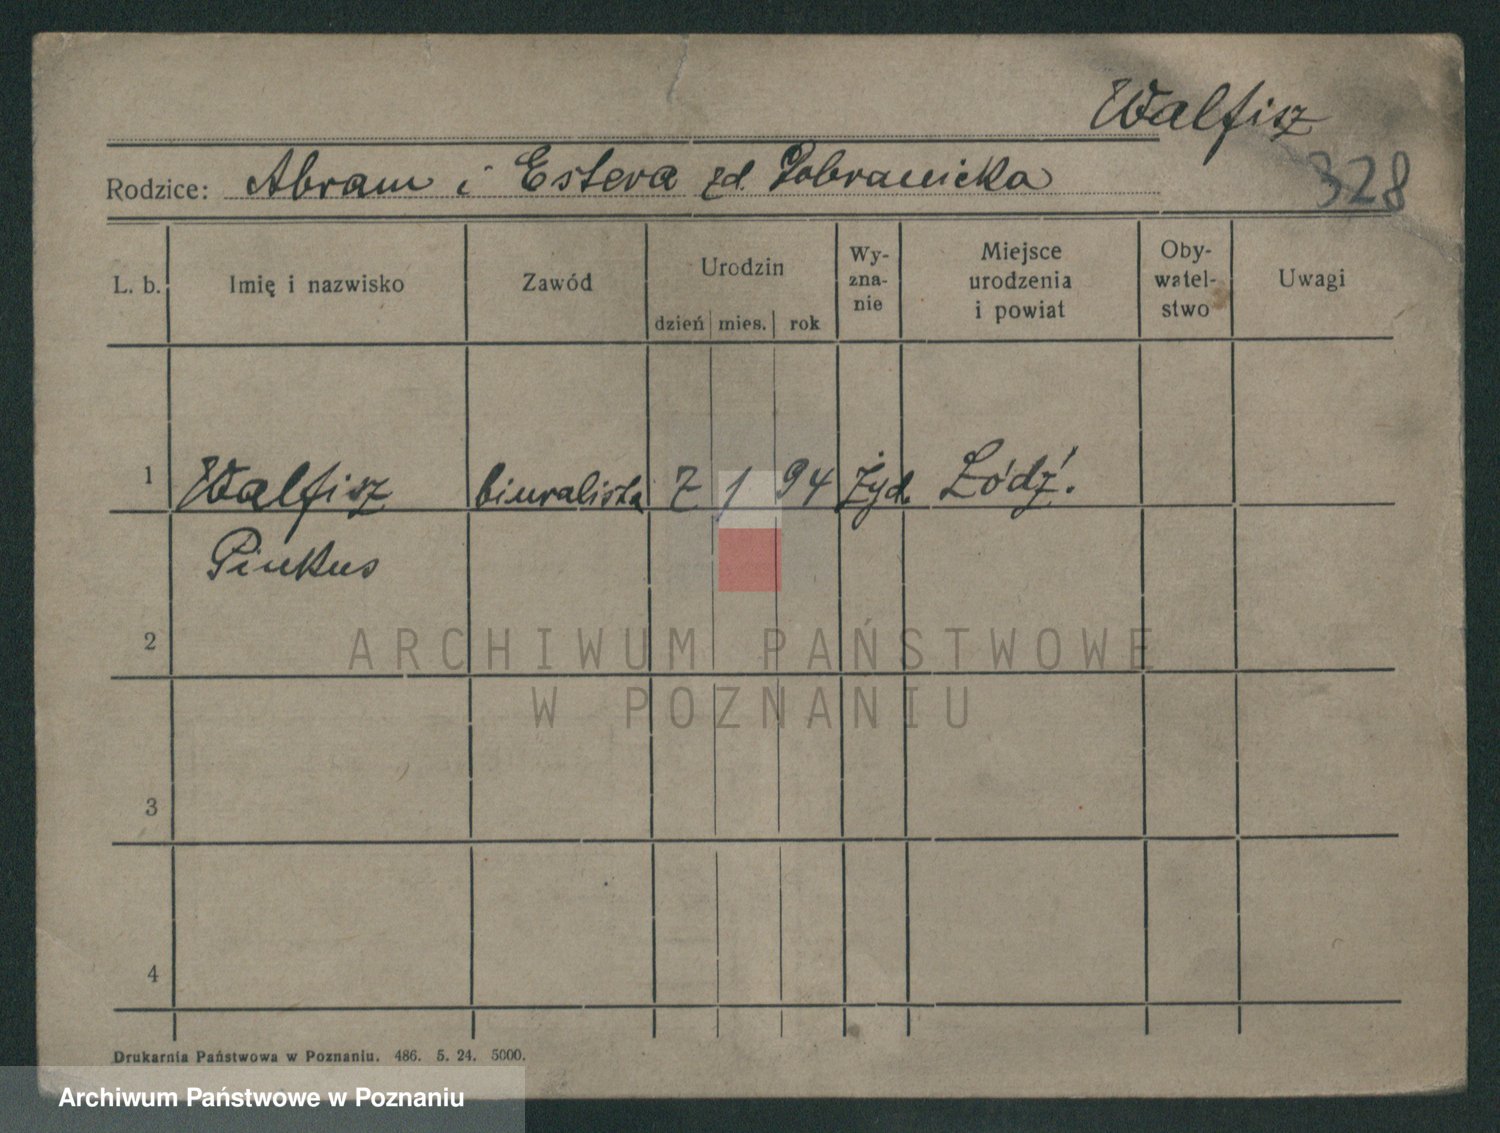 Walfisz
328
Rodzice: Abram i Estera zd. Dobranicka
L. b.
Imię i nazwisko
Zawód
Urodzin
dzień mies. rok
Wy-
zna-
nie
Miejsce
urodzenia
i powiat
Oby-
watel-
stwo
Uwagi
1 Walfisz biuralista 7 1 94 Żyd. Łódź.
Pinkus
2
ARCHIWUM PAŃSTWOWE
W POZNANIU
3
4
Drukarnia Państwowa w Poznaniu. 486. 5. 24. 5000.
Archiwum Państwowe w Poznaniu